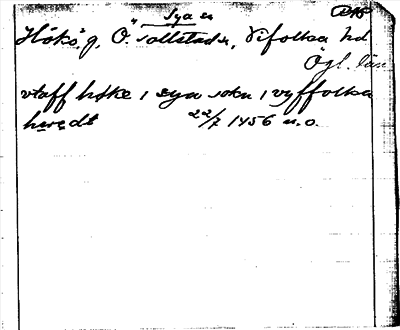 Sya sn
Hökö, g, Ö. Tollstad sn, Vifolka hd
Ögl. län
vtaff høke i sya sokn i vyffolka
hwndt 22/7 1456 u.o.